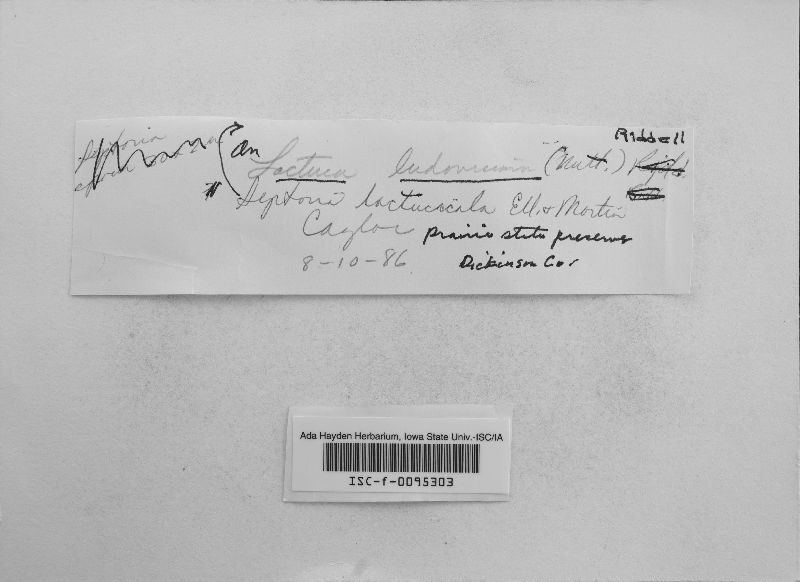 Riddell
Septoria
on Lactuca ludoviciana (Nutt.)
Septoria lactucicola Ell. & Martin
Cayler prairie state preserve
8-10-86 Dickinson Co.
Ada Hayden Herbarium, Iowa State Univ.-ISC/IA
ISC-f-0095303